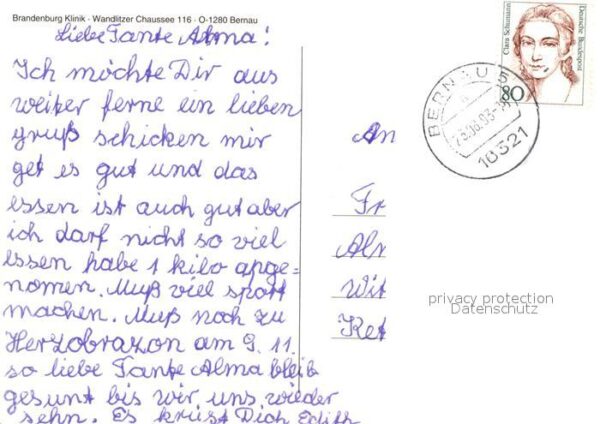 Brandenburg Klinik · Wandlitzer Chaussee 116 · O-1280 Bernau
Liebe Tante Alma!
Ich möchte Dir aus
weiter ferne ein lieben
gruß schicken mir
get es gut und das
essen ist auch gut aber
ich darf nicht so viel
essen habe 1 kilo apge=
nomen. Muß viel sport
machen. Muß noch zu
Herzobrazon am 9. 11.
so liebe Tante Alma bleib
gesunt bis wir uns wieder
sehn. Es krüst Dich Edith
An
Fr
Alr
Wit
Ket
BERNAU 5
16321
Clara Schumann
Deutsche Bundespost
80
privacy protection
Datenschutz